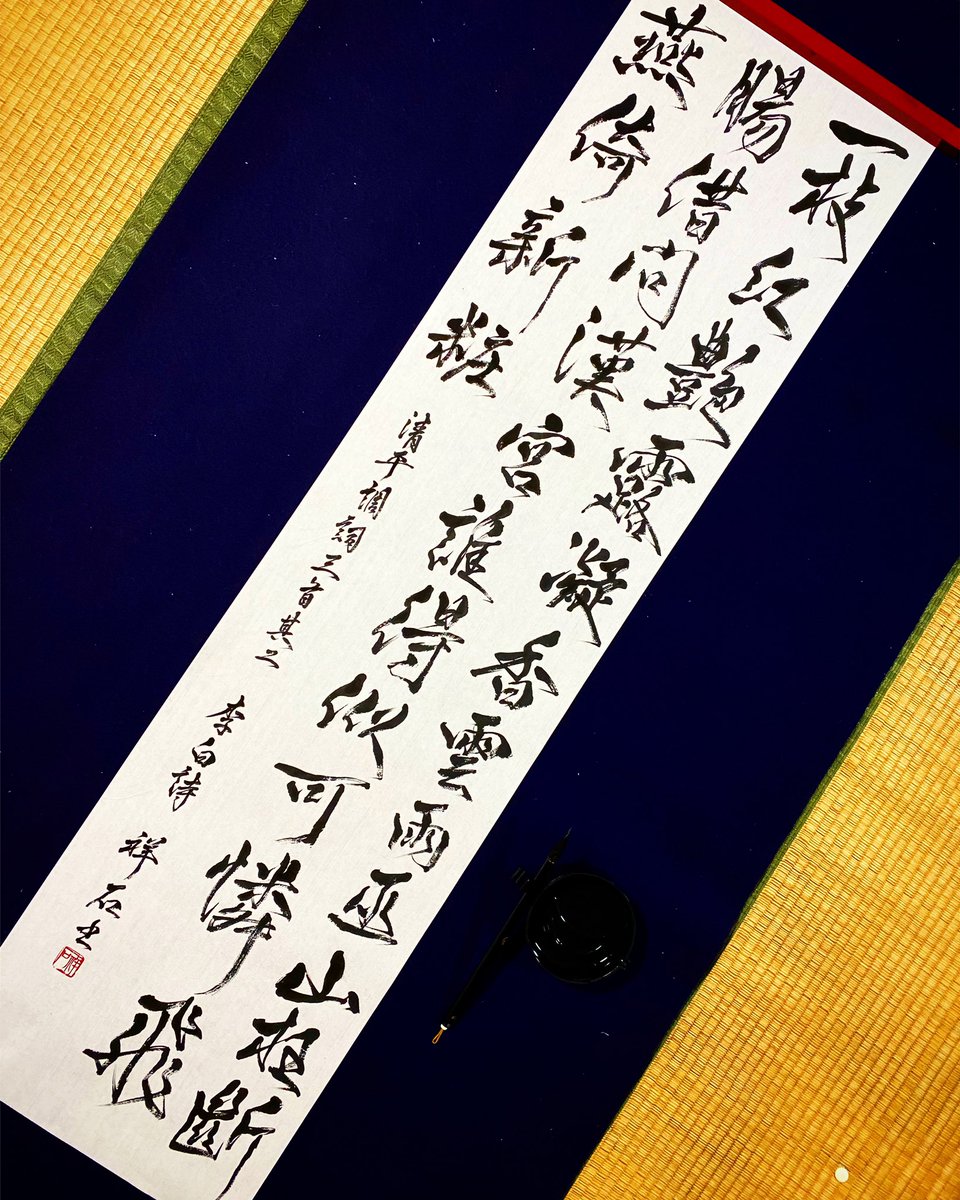 一枝紅艶露凝香雲雨巫山枉斷
腸借問漢宮誰得似可憐飛
燕倚新粧
清平調詞三首其二 李白詩 祥石書